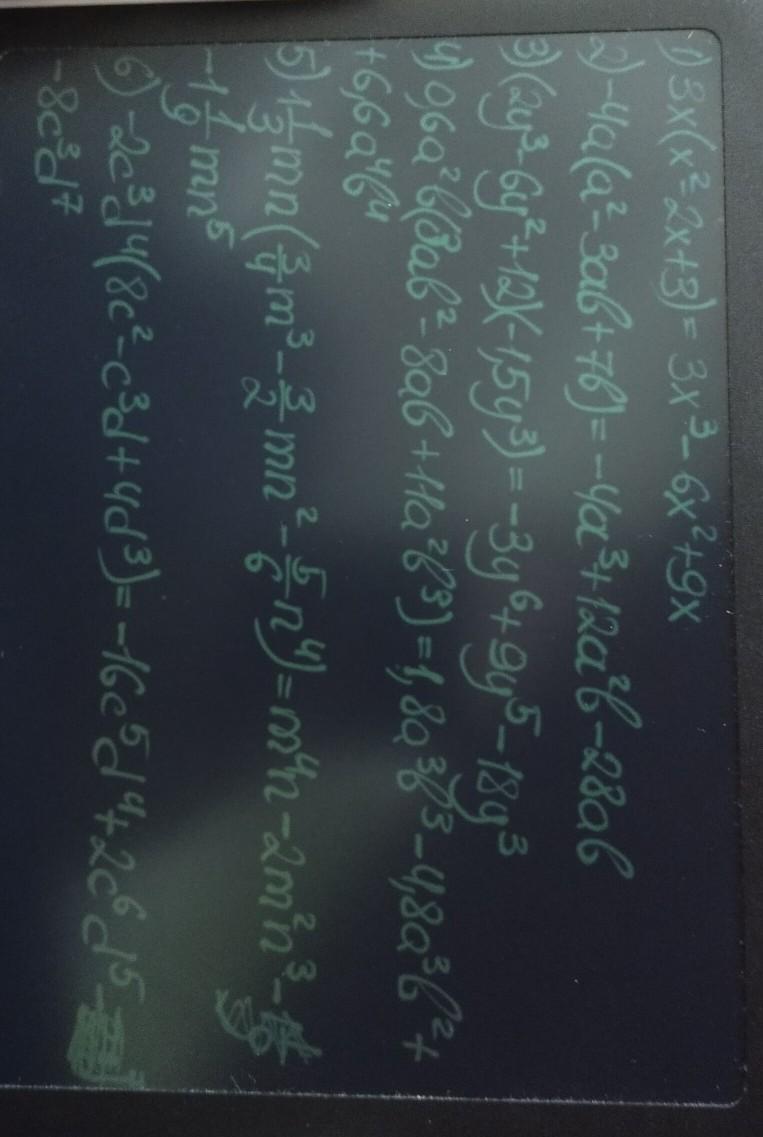 1) 3x(x²-2x+3)=3x³-6x²+9x
2) -4a(a²-3ab+7b)=-4a³+12a²b-28ab
3) (2y³-6y²+12)(-1,5y³)=-3y⁶+9y⁵-18y³
4) 0,6a²b(3ab²-8ab+11a²b³)=1,8a³b³-4,8a³b²+
+6,6a⁴b⁴
5) 1 1/3 mn(3/4 m³ - 3/2 mn² - 5/6 n⁴)=m⁴n-2m²n³-
-1 1/9 mn⁵
6) -2c³d⁴(8c²-c³d+4d³)=-16c⁵d⁴+2c⁶d⁵-
-8c³d⁷